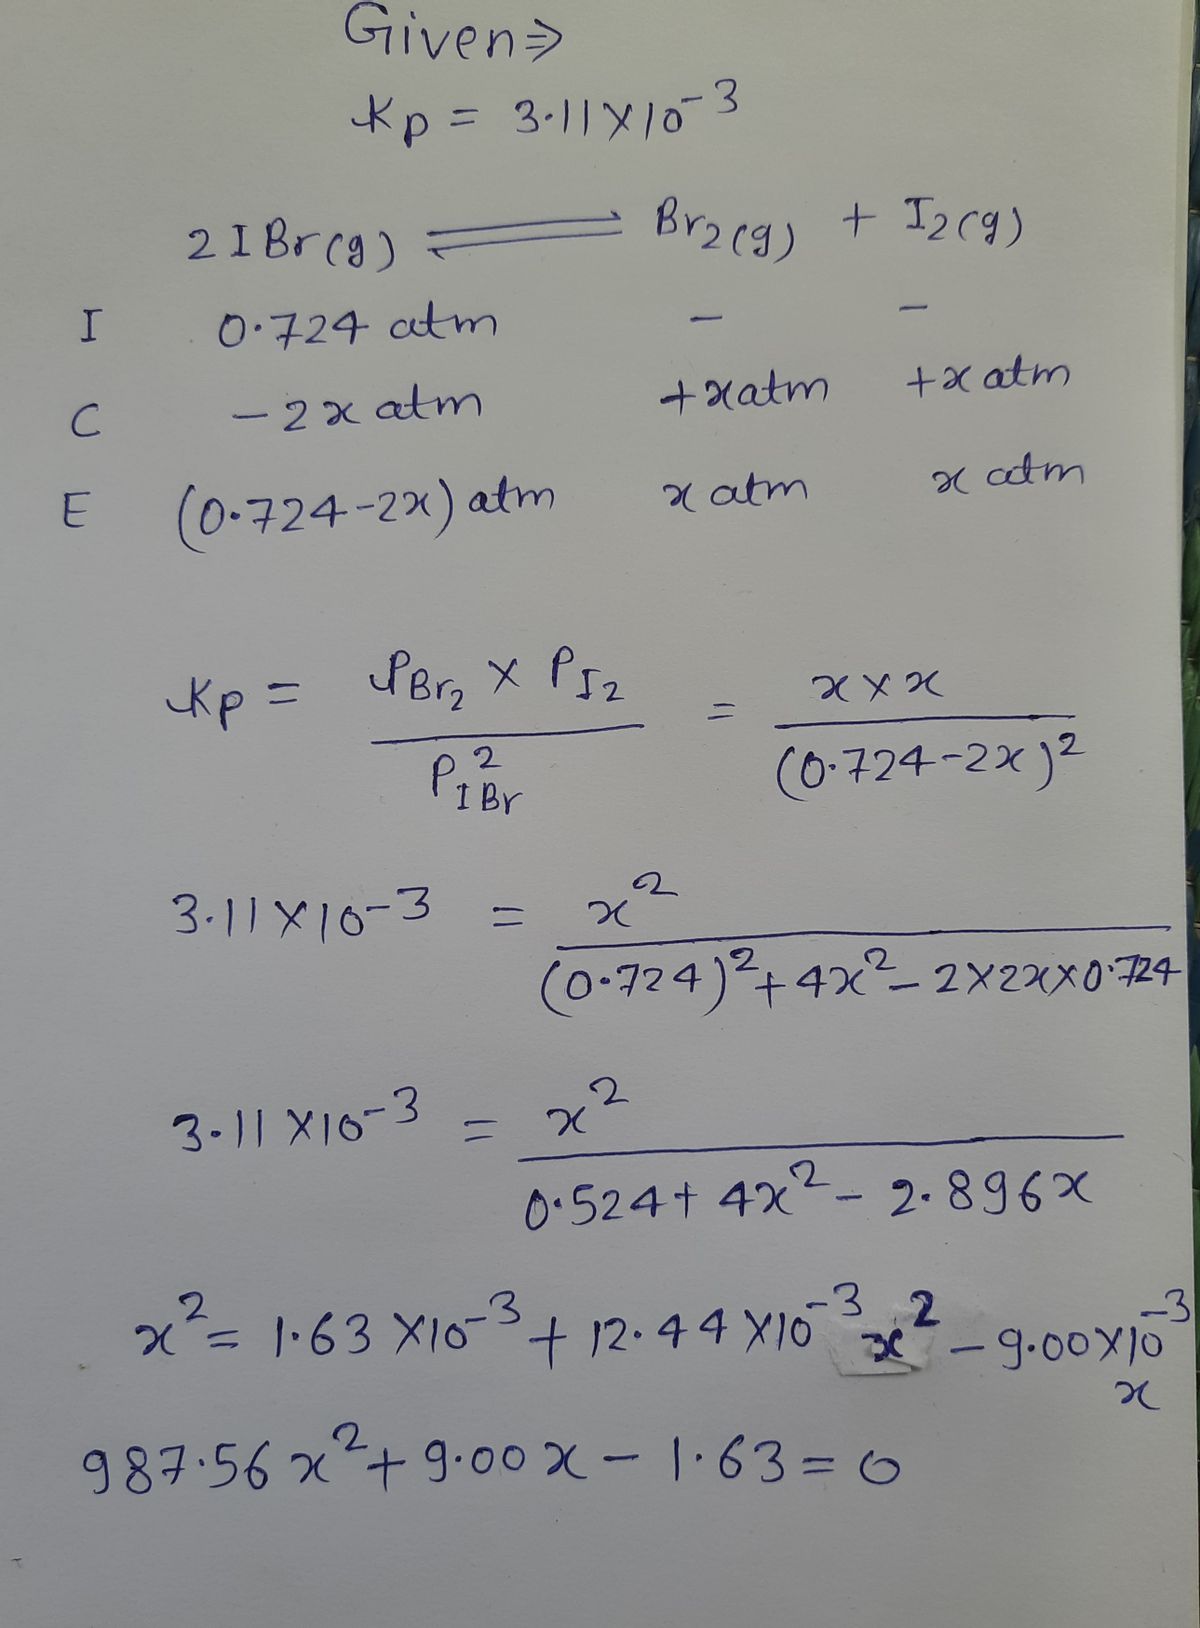 Given ⇒
Kp = 3.11 × 10⁻³
2IBr(g) ⇌ Br₂(g) + I₂(g)
I 0.724 atm - -
C -2x atm +x atm +x atm
E (0.724-2x) atm x atm x atm
Kp = P_Br₂ × P_I₂ / P_IBr² = x × x / (0.724-2x)²
3.11 × 10⁻³ = x² / (0.724)² + 4x² - 2×2x×0.724
3.11 × 10⁻³ = x² / 0.524 + 4x² - 2.896x
x² = 1.63 × 10⁻³ + 12.44 × 10⁻³ x² - 9.00 × 10⁻³ x
987.56x² + 9.00x - 1.63 = 0